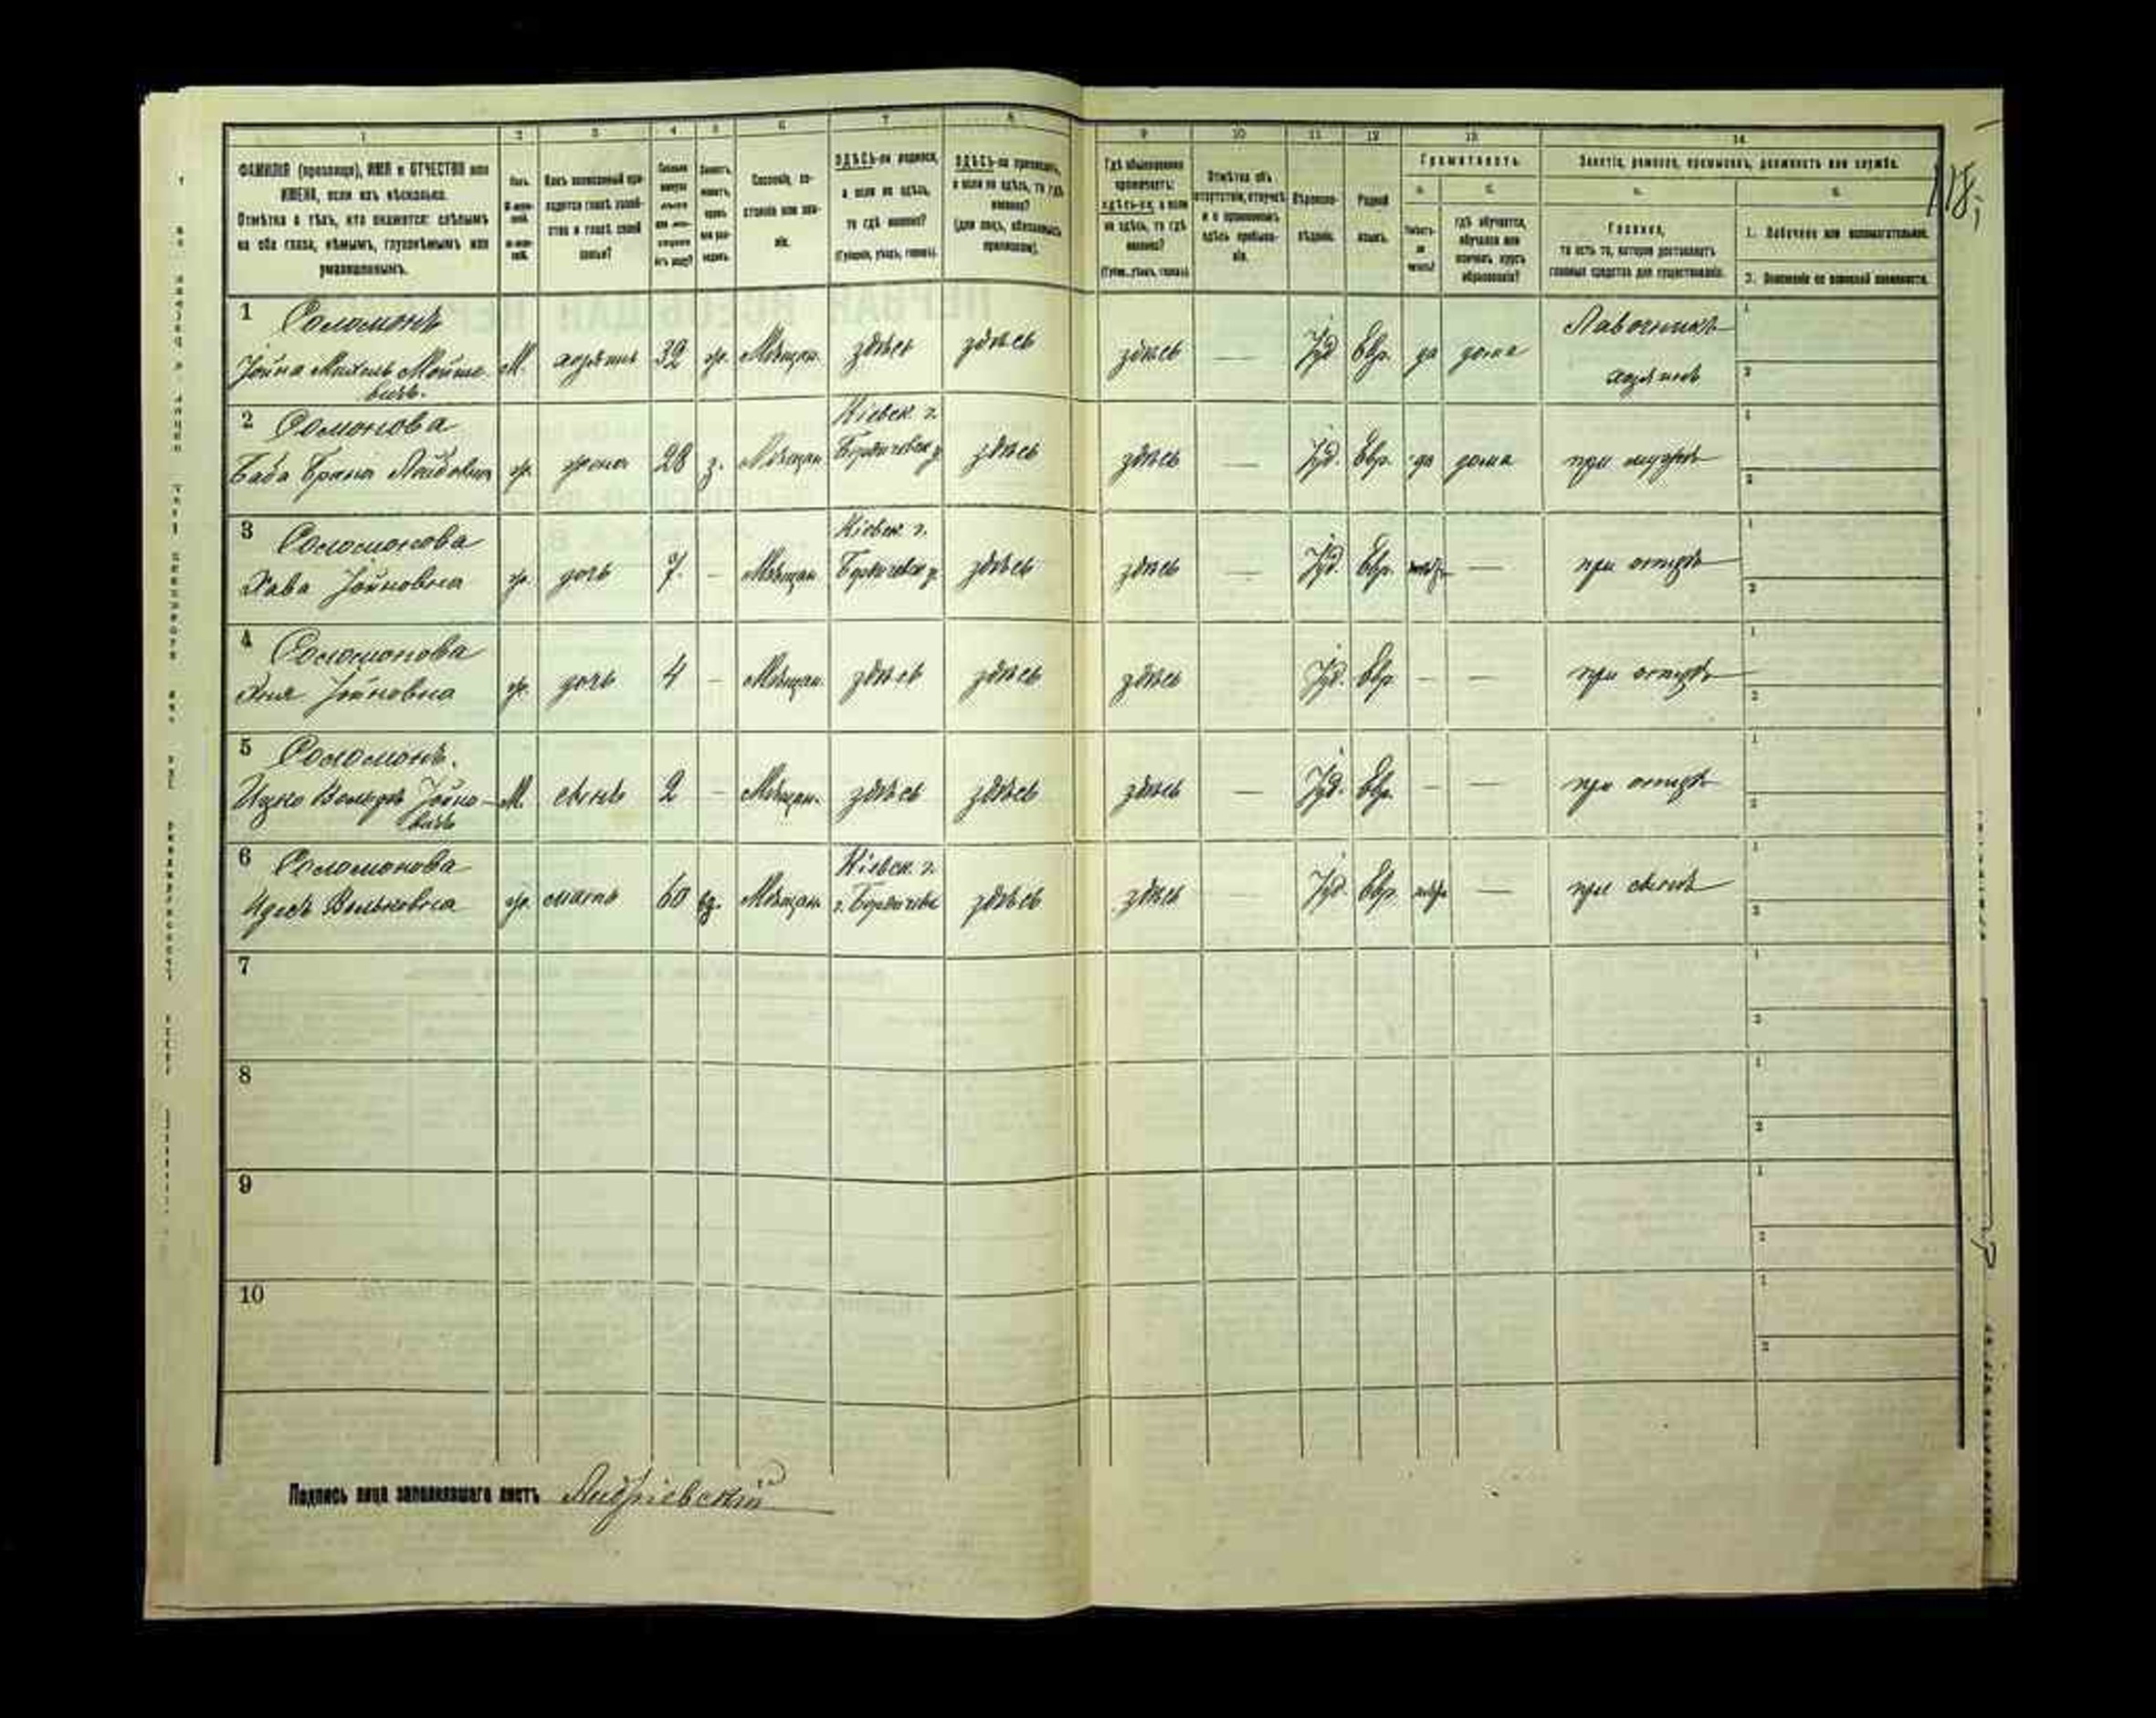 1 2 3 4 5 6 7 8 9 10 11 12 13 14
ФАМИЛІЯ (прозвище), ИМЯ и ОТЧЕСТВО или
ИМЕНА, если ихъ нѣсколько.
Отмѣтка о тѣхъ, кто окажется: слѣпымъ
на оба глаза, нѣмымъ, глухонѣмымъ или
умалишеннымъ.
Полъ.
Какъ записанный при-
ходится главѣ хозяй-
ства и главѣ своей
семьи?
Сословіе, со-
стояніе или зва-
ніе.
ЗДѢСЬ-ли родился,
а если не здѣсь,
то гдѣ именно?
(Губернія, уѣздъ, городъ).
ЗДѢСЬ-ли приписанъ,
а если не здѣсь, то гдѣ
именно?
(для лицъ, обязанныхъ
припискою).
Гдѣ обыкновенно
проживаетъ:
здѣсь-ли, а если
не здѣсь, то гдѣ
именно?
(Губер., уѣздъ, городъ).
Отмѣтка объ
отсутствіи, отлучкѣ
и о временномъ
здѣсь пребыва-
ніи.
Вѣроиспо-
вѣданіе.
Родной
языкъ.
Грамотность.
а. б.
Умѣетъ-
ли
читать?
гдѣ обучается,
обучался или
кончилъ курсъ
образованія?
Занятіе, ремесло, промыселъ, должность или служба.
а. б.
Главное,
то есть то, которое доставляетъ
главныя средства для существованія.
1. Побочное или вспомогательное.
2. Положеніе по воинской повинности.
118
1 Соломонъ
Іойна Михель Мойше-
вичъ.
М. хозяинъ 32 ж. Мѣщан. здѣсь здѣсь здѣсь — Іуд. Евр. да дома
Лавочникъ
хозяинъ
2 Соломонова
Баба Брана
ж. жена 28 з. Мѣщан.
Кіевск. г.
Бердичевск. у.
здѣсь здѣсь — Іуд. Евр. да дома при мужѣ
3 Соломонова
Хава Іойновна
ж. дочь 7 — Мѣщан.
Кіевск. г.
Бердичевск. у.
здѣсь здѣсь — Іуд. Евр. — при отцѣ
4 Соломонова
Іойновна
ж. дочь 4 — Мѣщан. здѣсь здѣсь здѣсь Іуд. Евр. — — при отцѣ
5 Соломонъ.
Ицко Вольфъ Іойно-
вичъ
М. сынъ 2 — Мѣщан. здѣсь здѣсь здѣсь — Іуд. Евр. — — при отцѣ
6 Соломонова
Идесь Вольковна
ж. мать 60 вд. Мѣщан.
Кіевск. г.
г. Бердичевъ
здѣсь здѣсь — Іуд. Евр. — при сынѣ
7
8
9
10
Подпись лица заполнявшаго листъ Андріевскій